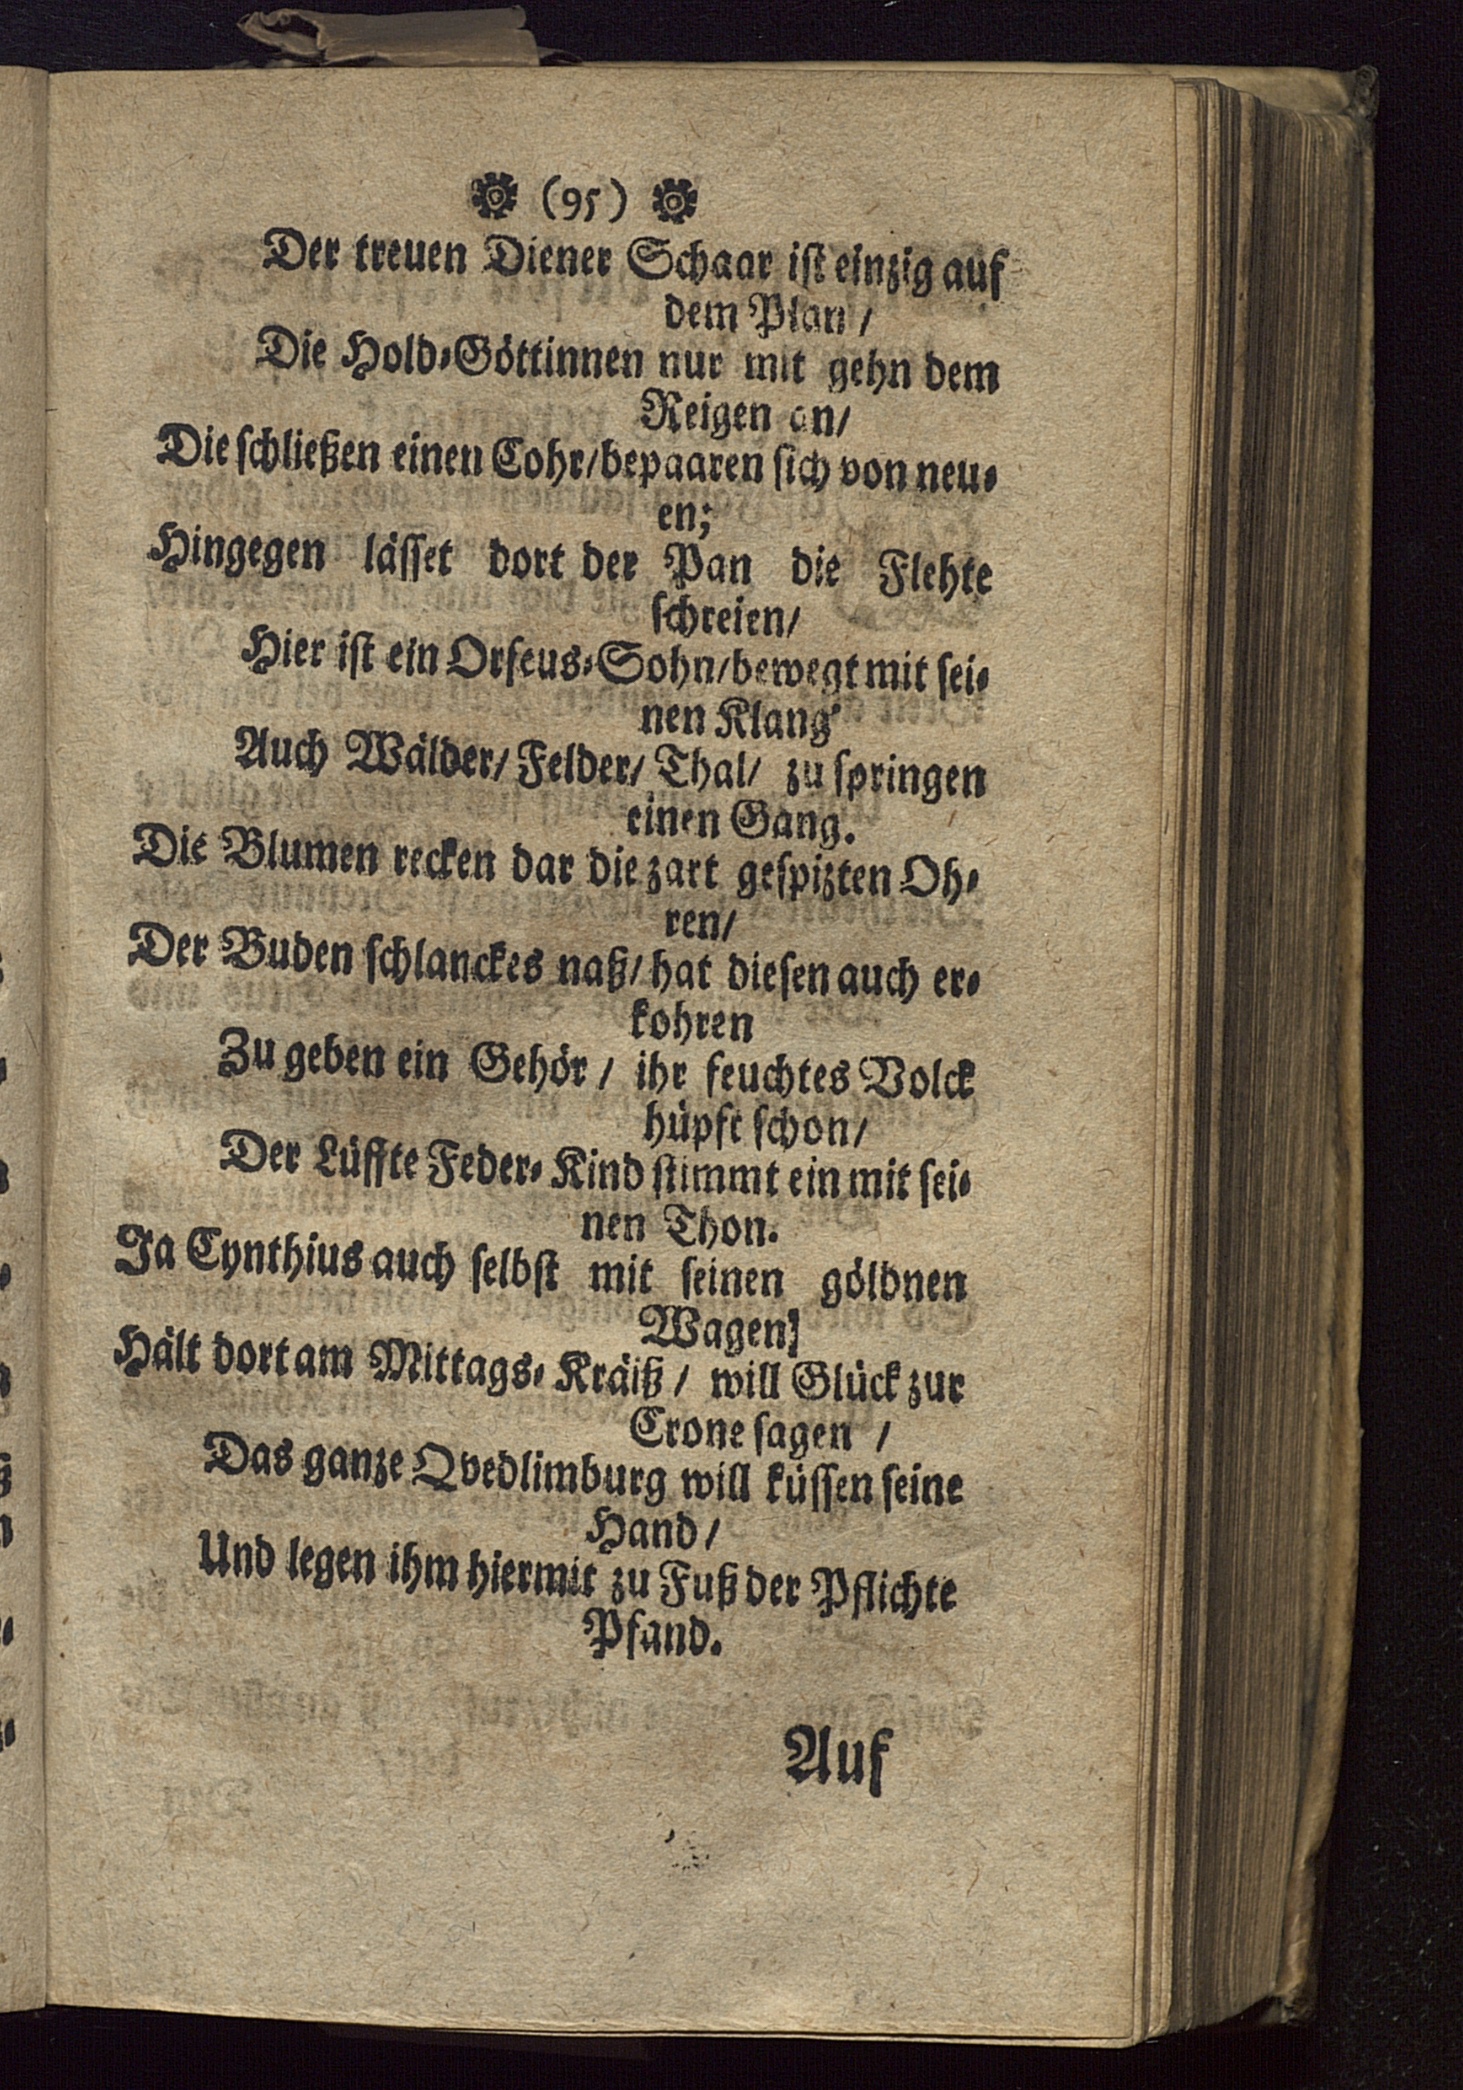 (95)
Der treuen Diener Schaar iſt einzig auf
dem Plan /
Die Hold⸗Göttinnen nur mit gehn dem
Reigen an/
Die ſchließen einen Cohr/bepaaren ſich von neu⸗
en;
Hingegen läſſet dort der Pan die Flehte
ſchreien/
Hier iſt ein Orfeus⸗Sohn/bewegt mit ſei⸗
nen Klang'
Auch Wälder/ Felder/ Thal/ zu ſpringen
einen Gang.
Die Blumen recken dar die zart geſpizten Oh⸗
ren/
Der Buden ſchlanckes naß/ hat dieſen auch er⸗
kohren
Zu geben ein Gehör / ihr feuchtes Volck
hüpft ſchon/
Der Lüffte Feder⸗ Kind ſtimmt ein mit ſei⸗
nen Thon.
Ja Cynthius auch ſelbſt mit ſeinen göldnen
Wagen]
Hält dort am Mittags⸗ Kräiß / will Glück zur
Crone ſagen /
Das ganze Qvedlimburg will küſſen ſeine
Hand /
Und legen ihm hiermit zu Fuß der Pflichte
Pfand.
Auf